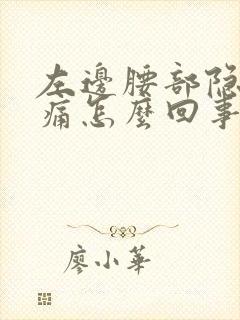 左邊腰部隐
痛怎麼回事
廖小華